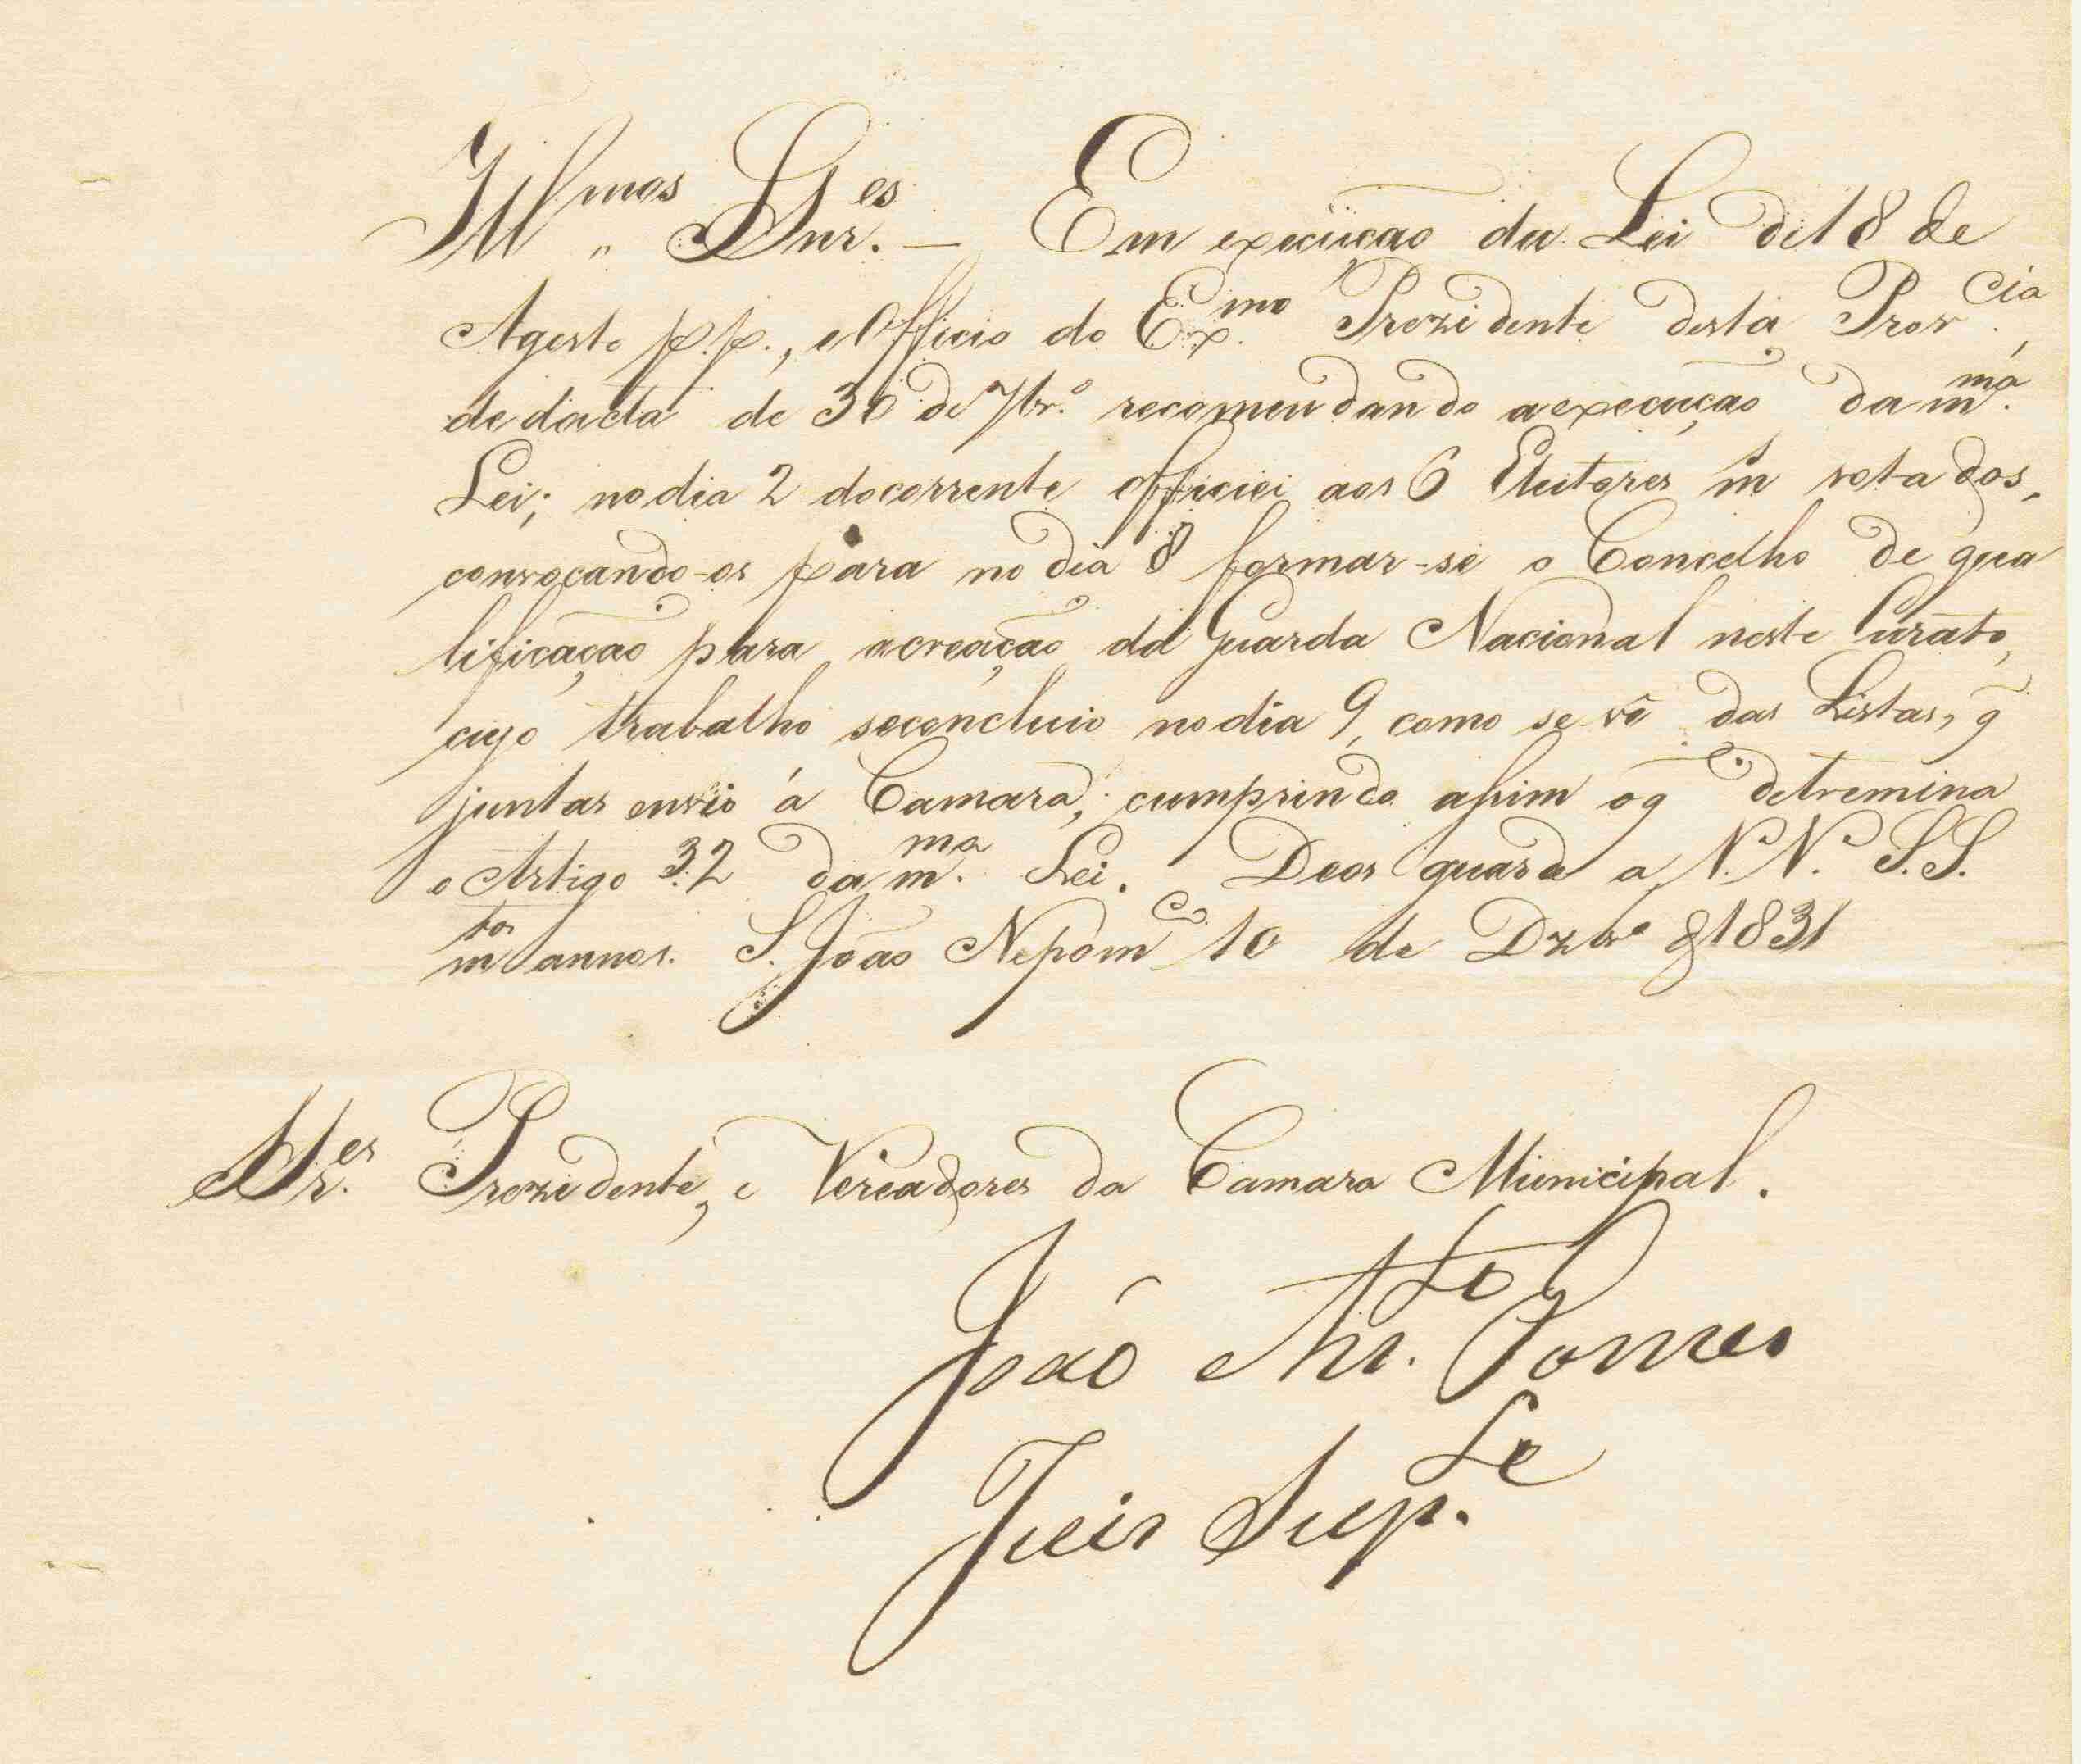 Ill.mos Snr.es — Em execução da Lei de 18 de
Agosto p.p., e Officio do Ex.mo Prezidente desta Prov.cia,
de dacta de 30 de 7br.º recomendando a execução da m.ma
Lei; no dia 2 do corrente officiei aos 6 Eleitores m.s votados,
convocando-os para no dia 8 formar-se o Concelho de qua
lificação para a creação da Guarda Nacional neste Curato,
cujo trabalho se concluio no dia 9, como se vê das Listas, q̃
juntas envio á Camara, cumprindo assim o q̃ detremina
o Artigo 32 da m.ma Lei. Deos guarde a V.V. S.S.
m.tos annos. S. João Nepom.co 10 de Dzbr.º d 1831
Sr.es Prezidente, e Vereadores da Camara Municipal.
João Gomes
Juis Sup.te